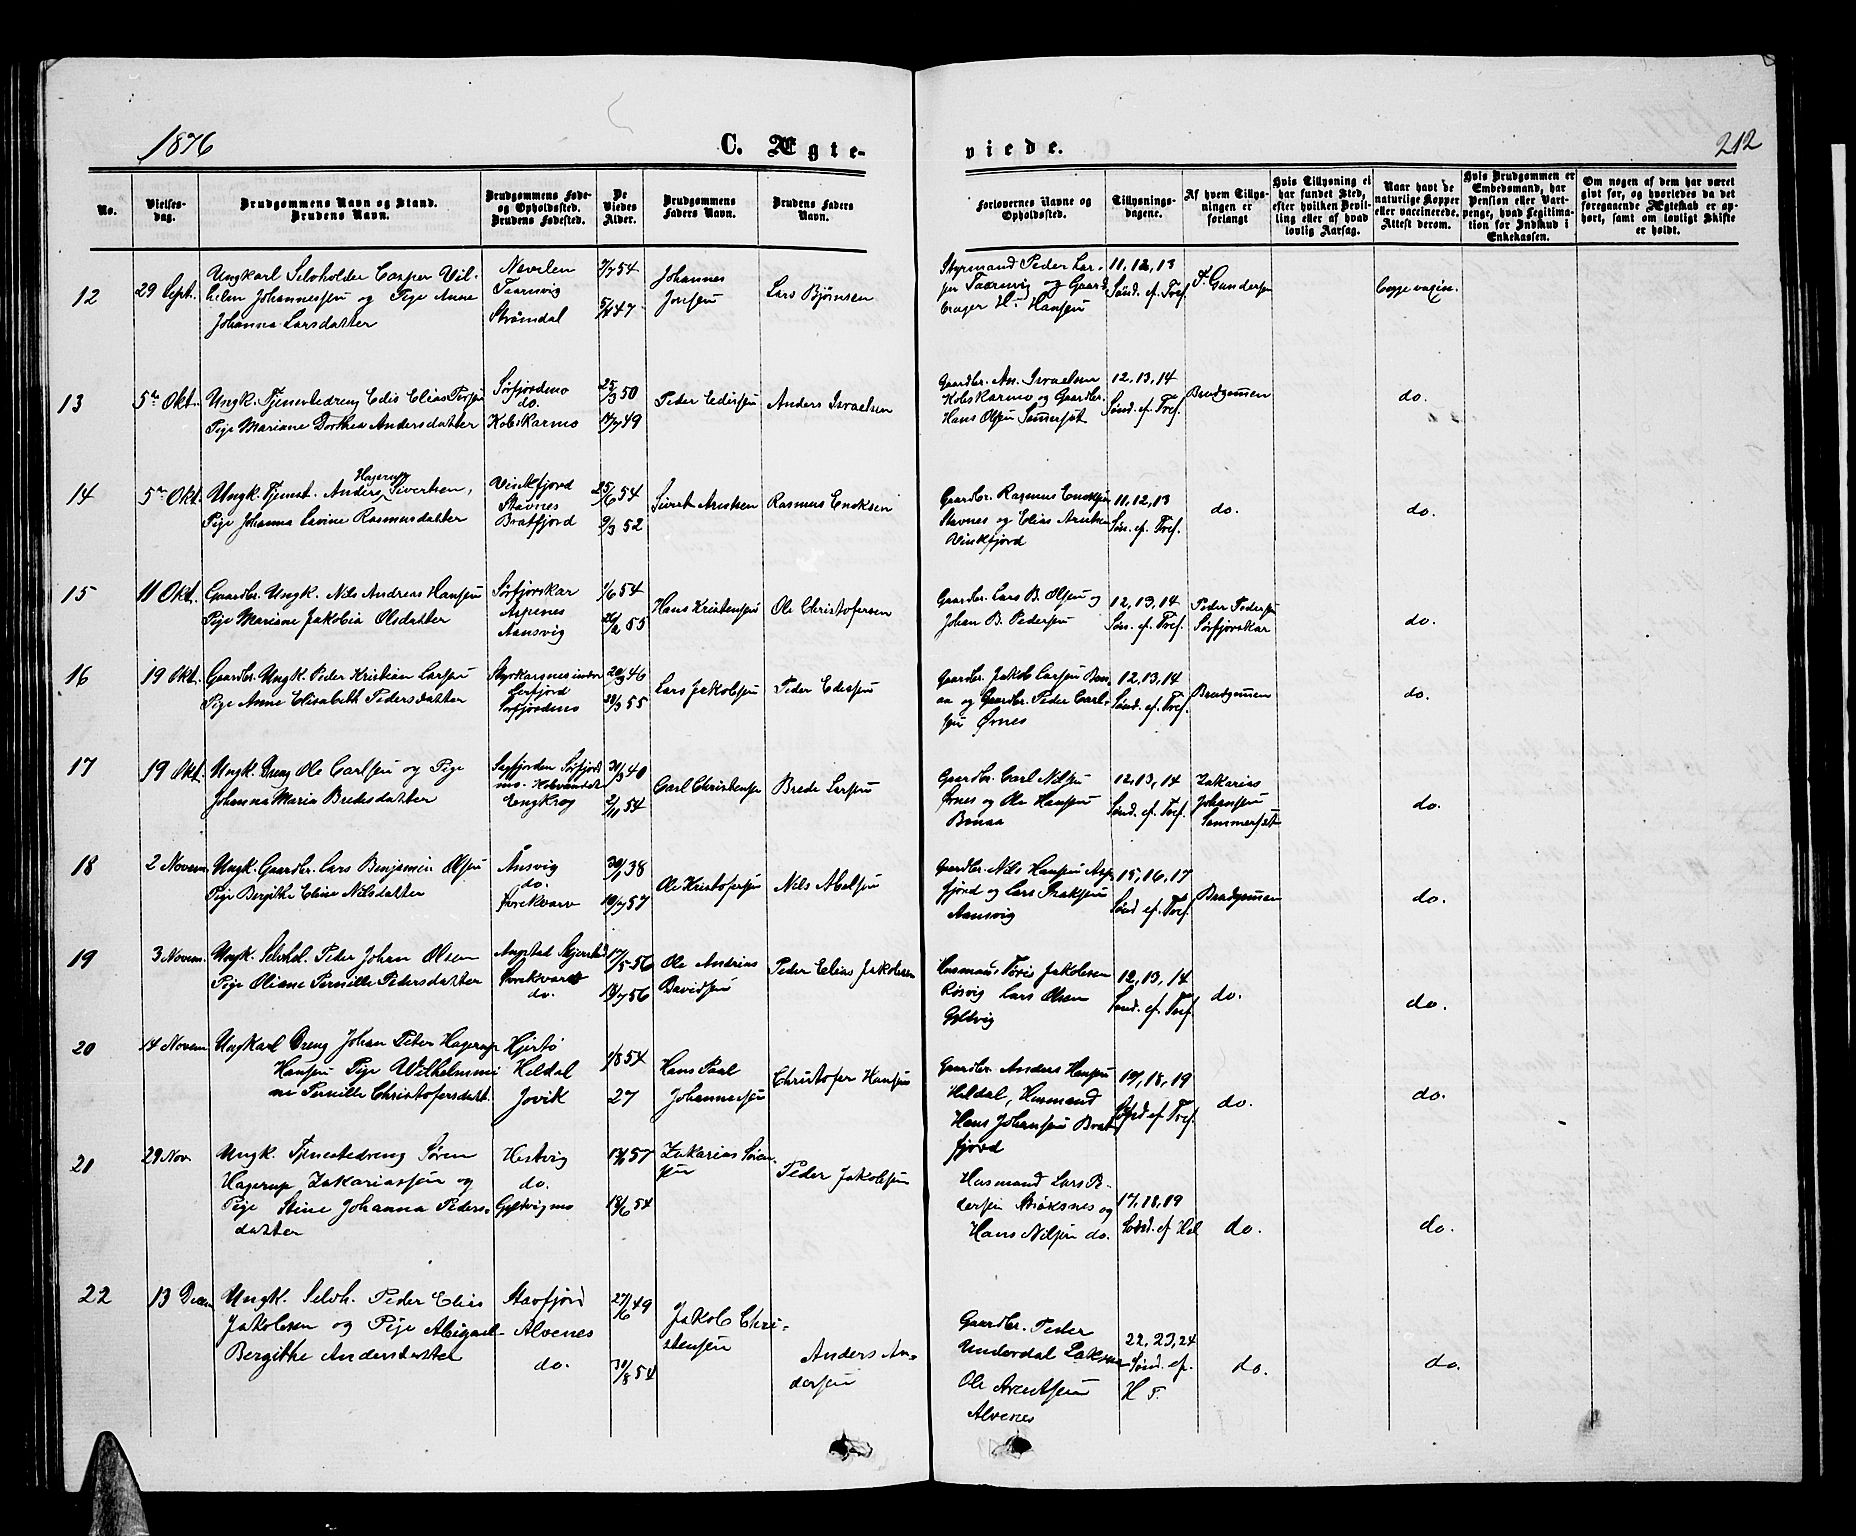 1876
C. Ægte-
viede.
212
No.
Vielses-
dag.
Brudgommens Navn og Stand.
Brudens Navn.
Brudgommens Føde-
og Opholdssted.
Brudens Fødested.
De
Viedes
Alder.
Brudgommens
Faders Navn.
Brudens Faders
Navn.
Forlovernes Navne og
Opholdssted.
Tillysnings-
dagene.
Af hvem Tillys-
ningen er
forlangt
Hvis Tillysning ei
har fundet Sted,
efter hvilken Bevil-
ling eller af hvad
lovlig Aarsag.
Naar havt de
naturlige Kopper
eller vaccinerede.
Attest derom.
Hvis Brudgommen er
Embedsmand, har
Pension eller Vart-
penge, hvad Legitima-
tion for Indskud i
Enkekassen.
Om nogen af dem har været
gift før, og hvorledes da det
foregaaende Ægteskab er op-
hørt, samt om lovligt Skifte
er holdt.
12
29 Sept.
Ungkarl Selvholder Casper Vil-
helm Johannessen og Pige Anne
Johanna Larsdatter
Nevelen
Taarnvig
Strømdal
2/7 54
5/4 47
Johannes
Jonsen
Lars Bjørnsen
Styrmand Peder Lar-
sen Taarnvig og Gaard
bruger H. Hansen
11, 12, 13
Sønd. ef. Tref.
F. Gundersen
Begge vaxin.
13
5te Okt.
Ungk. Tjenestedreng Edis Elias Pedersen
Pige Mariane Dorthea Andersdatter
Sørfjordmo
do.
Kobskarmo
25/3 50
14/7 49
Peder Edissen
Anders Israelsen
Gaardbr. An. Israelsen
Kobskarmo og Gaardbr.
Hans Olsen Sommerset
12, 13, 14
Sønd. ef. Tref.
Brudgommen
do.
14
5te Okt.
Ungk. Tjenst. Anders Hagerup Sivertsen,
Pige Johanna Lavine Rasmusdatter
Vinkfjord
Stavnes
Bratfjord
25/6 54
9/3 52
Sivert Arntsen
Rasmus Enoksen
Gaardbr. Rasmus Enoksen
Stavnes og Elias Arntsen
Vinkfjord
11, 12, 13
Søn. ef. Tref.
do.
do.
15
11 Okt.
Gaardbr. Ungk. Nils Andreas Hansen
Pige Mariane Jakobia Olsdatter
Sørfjorskar
Aspenes
Aansvig
1/6 54
26/2 55
Hans Kristensen
Ole Christofersen
Gaardbr. Lars B. Olsen og
Johan B. Pedersen
12, 13, 14
Søn. ef. Tref.
Peder Pedersen
Sørfjorskar
do.
16
19 Okt.
Gaardbr. Ungk. Peder Kristian Larsen
Pige Anne Elisabeth Pedersdatter
Styrkarsnes indre
Leirfjord
Sørfjordmo
20/3 46
28/3 55
Lars Jakobsen
Peder Edissen
Gaardbr. Jakob Larsen Bon-
aa og Gaardbr. Peder Carl-
sen Ørnes
12, 13, 14
Sønd. ef. Tref.
Brudgommen
do.
17
19 Okt.
Ungk. Dreng Ole Carlsen og Pige
Johanna Maria Bredesdatter
Sagfjorden Sørfjord
mo. Kobvandet
Engkrog
31/3 40
2/11 54
Carl Christensen
Brede Larsen
Gaardbr. Carl Nilsen
Ørnes og Ole Hansen
Bonaa
12, 13, 14
Sønd. ef. Tref.
Zakarias
Johansen
Sommerset
do.
18
2 Novem.
Ungk. Gaardbr. Lars Benjamin Olsen
Pige Bergithe Eline Nilsdatter
Ånsvig
do.
Kvrekvarv
30/1 38
19/7 57
Ole Kristofersen
Nils Abelsen
Gaardbr. Nils Hansen Asp-
fjord og Lars Isaksen
Aansvig
15, 16, 17
Sønd. ef. Tref.
Brudgommen
do.
19
3 Novem.
Ungk. Selvhol. Peder Johan Olsen
Pige Oliane Pernille Pedersdatter
do.
17/5 56
18/7 56
Ole Andrias
Davidsen
Peder Elias Jakobsen
Husmand Tøris Jakobsen
Røsvig Lars Olsen
Gyltvig
12, 13, 14
Sønd. ef. Tref.
do.
do.
20
14 Novem
Ungkarl Dreng Johan Peter Hagerup
Hansen Pige Wilhelmmi
ne Pernille Christofersdatt.
Hjertø
Heldal
Jovik
1/8 54
27
Hans Paal
Johannessen
Christofer Hansen
Gaardbr. Anders Hansen
Heldal, Husmand
Hans Johansen Brat-
fjord
17, 18, 19
Sønd ef. Tref.
do.
do.
21
29 Nov.
Ungk. Tjenestedreng Søren
Hagerup Zakariassen og
Pige Stine Johanna Peders-
datter
Hestvig
do.
Gyltvigmo
57
18/6 54
Zakarias Søren-
sen
Peder Jakobsen
Husmand Lars P-
dersen Brixsnes og
Hans Nilsen do.
17, 18, 19
Sønd. ef Hel
do.
do.
22
13 Decem
Ungk. Selvh. Peder Elias
Jakobsen og Pige Abigael-
Bergithe Andersdatter
Stavfjord
Alvenes
do.
27/6 49
30/8 54
Jakob Chri-
stensen
Anders An-
dersen
Gaardbr. Peder
Underdal
Ole Arentsen
Alvenes
22, 23, 24
Sønd. ef.
H T.
do.
do.